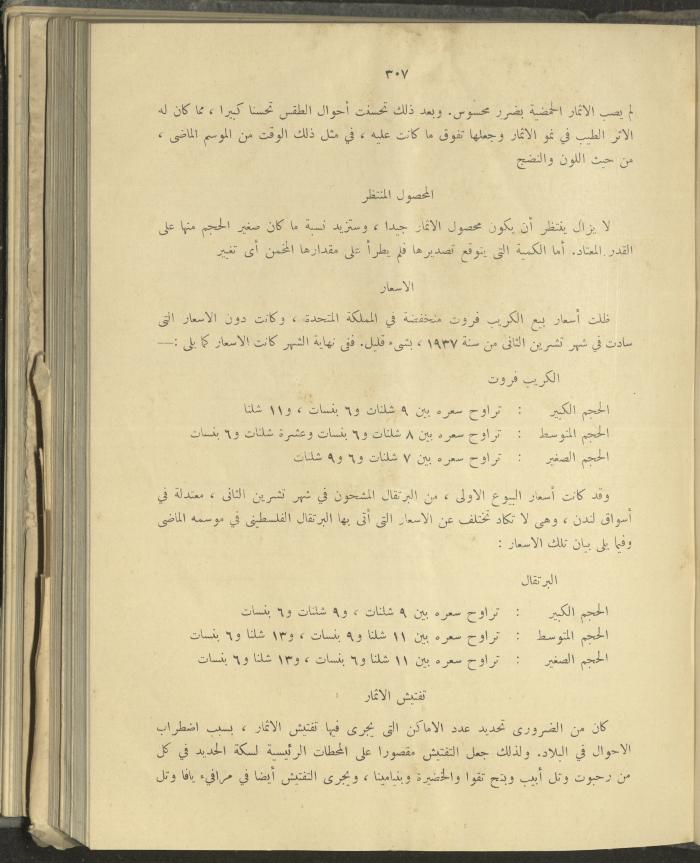 ٣٠٧
لم يصب الاثمار الحمضية بضرر محسوس. وبعد ذلك تحسنت أحوال الطقس تحسنا كبيرا ، مما كان له
الاثر الطيب في نمو الاثمار وجعلها تفوق ما كانت عليه ، في مثل ذلك الوقت من الموسم الماضى ،
من حيث اللون والنضج
المحصول المنتظر
لا يزال ينتظر أن يكون محصول الاثمار جيدا ، وستزيد نسبة ما كان صغير الحجم منها على
القدر المعتاد. أما الكمية التى يتوقع تصديرها فلم يطرأ على مقدارها المخمن أى تغيير
الاسعار
ظلت أسعار بيع الكريب فروت منخفضة في المملكة المتحدة ، وكانت دون الاسعار التى
سادت في شهر تشرين الثانى من سنة ١٩٣٧ ، بشىء قليل. ففى نهاية الشهر كانت الاسعار كما يلى :—
الكريب فروت
الحجم الكبير : تراوح سعره بين ٩ شلنات و٦ بنسات ، و١١ شلنا
الحجم المتوسط : تراوح سعره بين ٨ شلنات و٦ بنسات وعشرة شلنات و٦ بنسات
الحجم الصغير : تراوح سعره بين ٧ شلنات و٦ و٩ شلنات
وقد كانت أسعار البيوع الاولى ، من البرتقال المشحون في شهر تشرين الثانى ، معتدلة في
أسواق لندن ، وهى لا تكاد تختلف عن الاسعار التى أتى بها البرتقال الفلسطينى في موسمه الماضى
وفيما يلى بيان تلك الاسعار :
البرتقال
الحجم الكبير : تراوح سعره بين ٩ شلنات ، و٩ شلنات و٦ بنسات
الحجم المتوسط : تراوح سعره بين ١١ شلنا و٩ بنسات ، و١٣ شلنا و٦ بنسات
الحجم الصغير : تراوح سعره بين ١١ شلنا و٦ بنسات ، و١٣ شلنا و٦ بنسات
تفتيش الاثمار
كان من الضرورى تحديد عدد الاماكن التى يجرى فيها تفتيش الاثمار ، بسبب اضطراب
الاحوال في البلاد. ولذلك جعل التفتيش مقصورا على المحطات الرئيسية لسكة الحديد في كل
من رحبوت وتل أبيب وبتح تقوا والخضيرة وبنيامينا ، ويجرى التفتيش أيضا في مرافيء يافا وتل